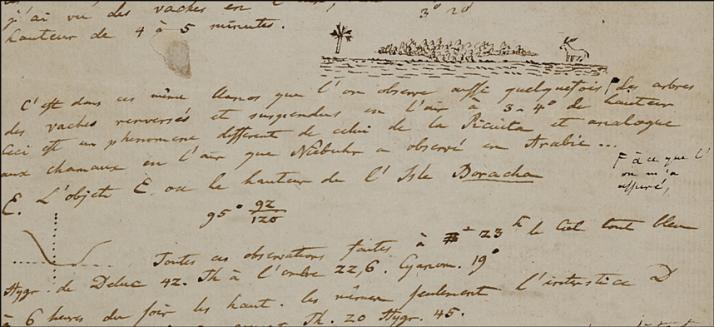 j'ai vu des vaches en l'
hauteur de 4 à 5 minutes.
3° 20'
C'est dans ces même que l'on observe aussi quelquefois des arbres
des vaches renversés et suspendus en l'air à 3-4° de hauteur
Ceci est un phenomene different de celui de la Picuita et analogue
aux chamaux en l'air que Niebuhr a observé en Arabie...
F à ce que l'
on m'a
assuré,
E. L'objet E. ou le hauteur de l'Isle Boracha
95° 92/120
Toutes ces observations faites à 23 h le Ciel tout bleu
Hygr. de Deluc 42. Th à l'ombre 22,6. Cyanom. 19°
à 6 heures du soir les haut. les mêmes seulement l'interstice D
Th. 20 Hygr. 45.